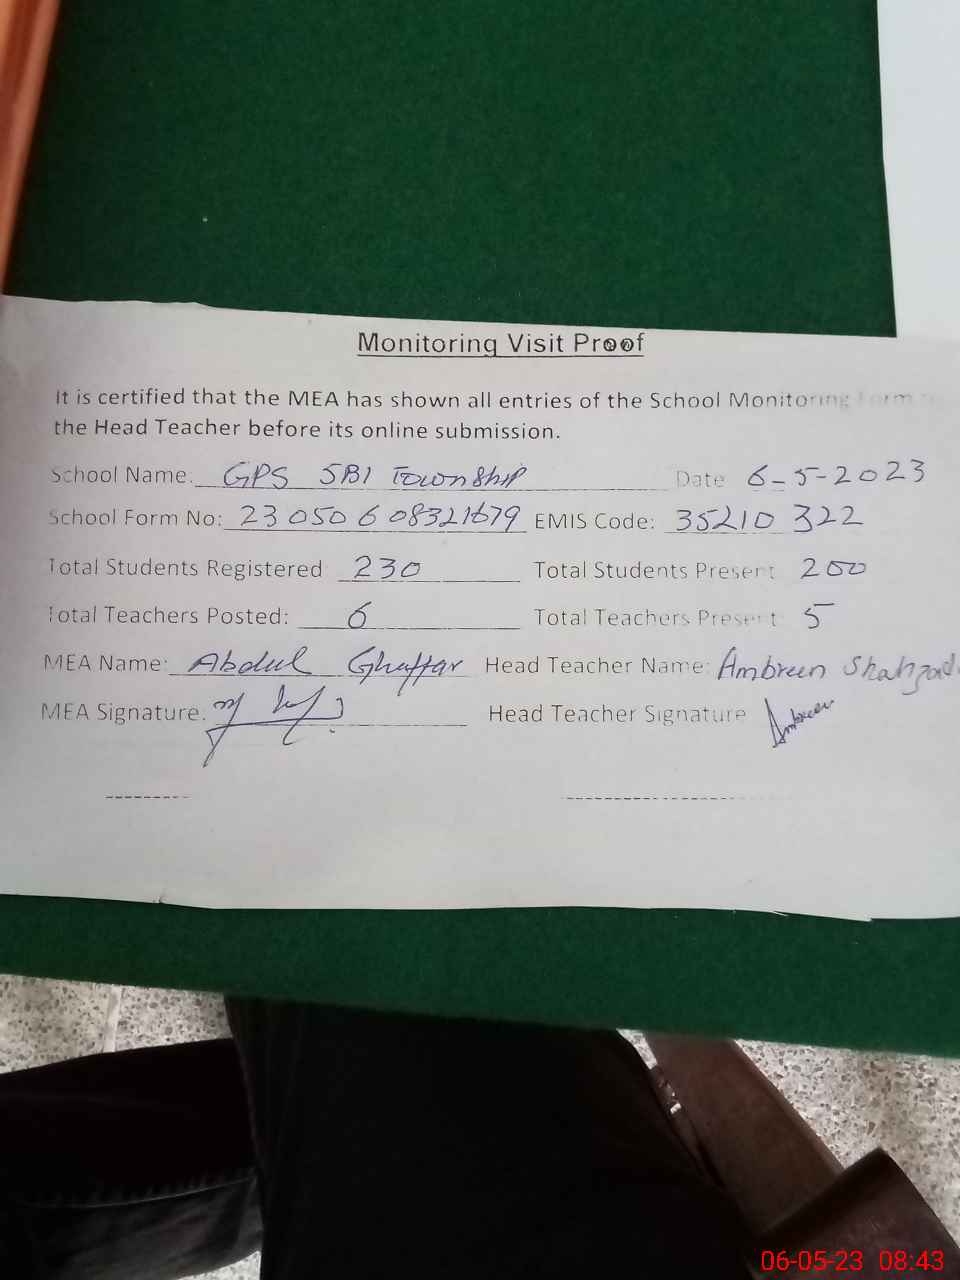 Monitoring Visit Proof
It is certified that the MEA has shown all entries of the School Monitoring Form to
the Head Teacher before its online submission.
School Name: GPS 5B1 Township Date 6-5-2023
School Form No: 23050608321679 EMIS Code: 35210322
Total Students Registered 230 Total Students Present 200
Total Teachers Posted: 6 Total Teachers Present 5
MEA Name: Abdul Ghaffar Head Teacher Name: Ambreen Shahzad
MEA Signature: Head Teacher Signature Ambreen
06-05-23 08:43